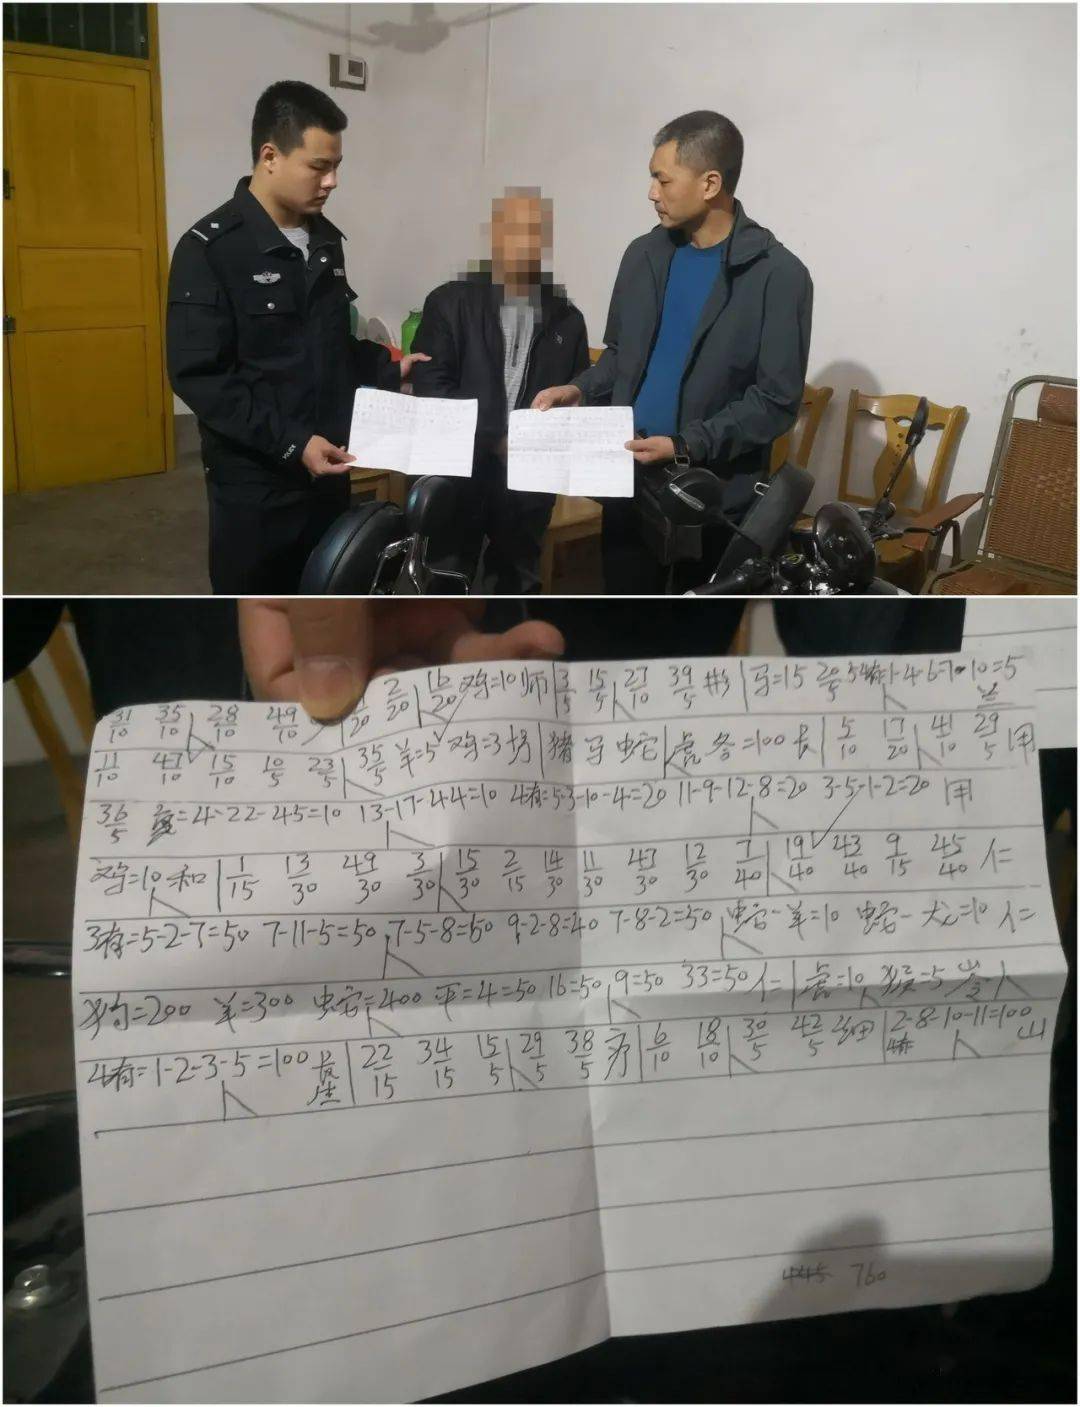 POLICE
31/10 35/10 28/10 49/10 1/20 2/20 16/20 鸡=10师 3/5 15/5 27/10 39/5 马=15 20/5 4有1-4-6-7-10=5
11/10 47/10 15/10 10/5 23/5 35/5 羊=5 鸡=3 猪 马 蛇 虎各=100 长 5/10 17/20 41/10 29/5 用
36/5 =4-22-45=10 13-17-44=10 4有=5-3-10-4=20 11-9-12-8=20 3-5-1-2=20 用
鸡=10 和 1/15 13/30 49/30 3/30 15/30 2/15 14/30 11/30 43/30 12/30 7/40 19/40 43/40 9/15 45/40 仁
3有=5-2-7=50 7-11-5=50 7-5-8=50 9-2-8=40 7-8-2=50 蛇-羊=10 蛇-犬=10 仁
狗=200 羊=300 蛇=400 平=4=50 16=50 9=50 33=50 仁 虎=10 猴=5
4有=1-2-3-5=100 长生 22/15 34/15 15/5 29/5 38/5 6/10 18/10 30/5 42/5 细 4有 2-8-10-11=100 山
445 760